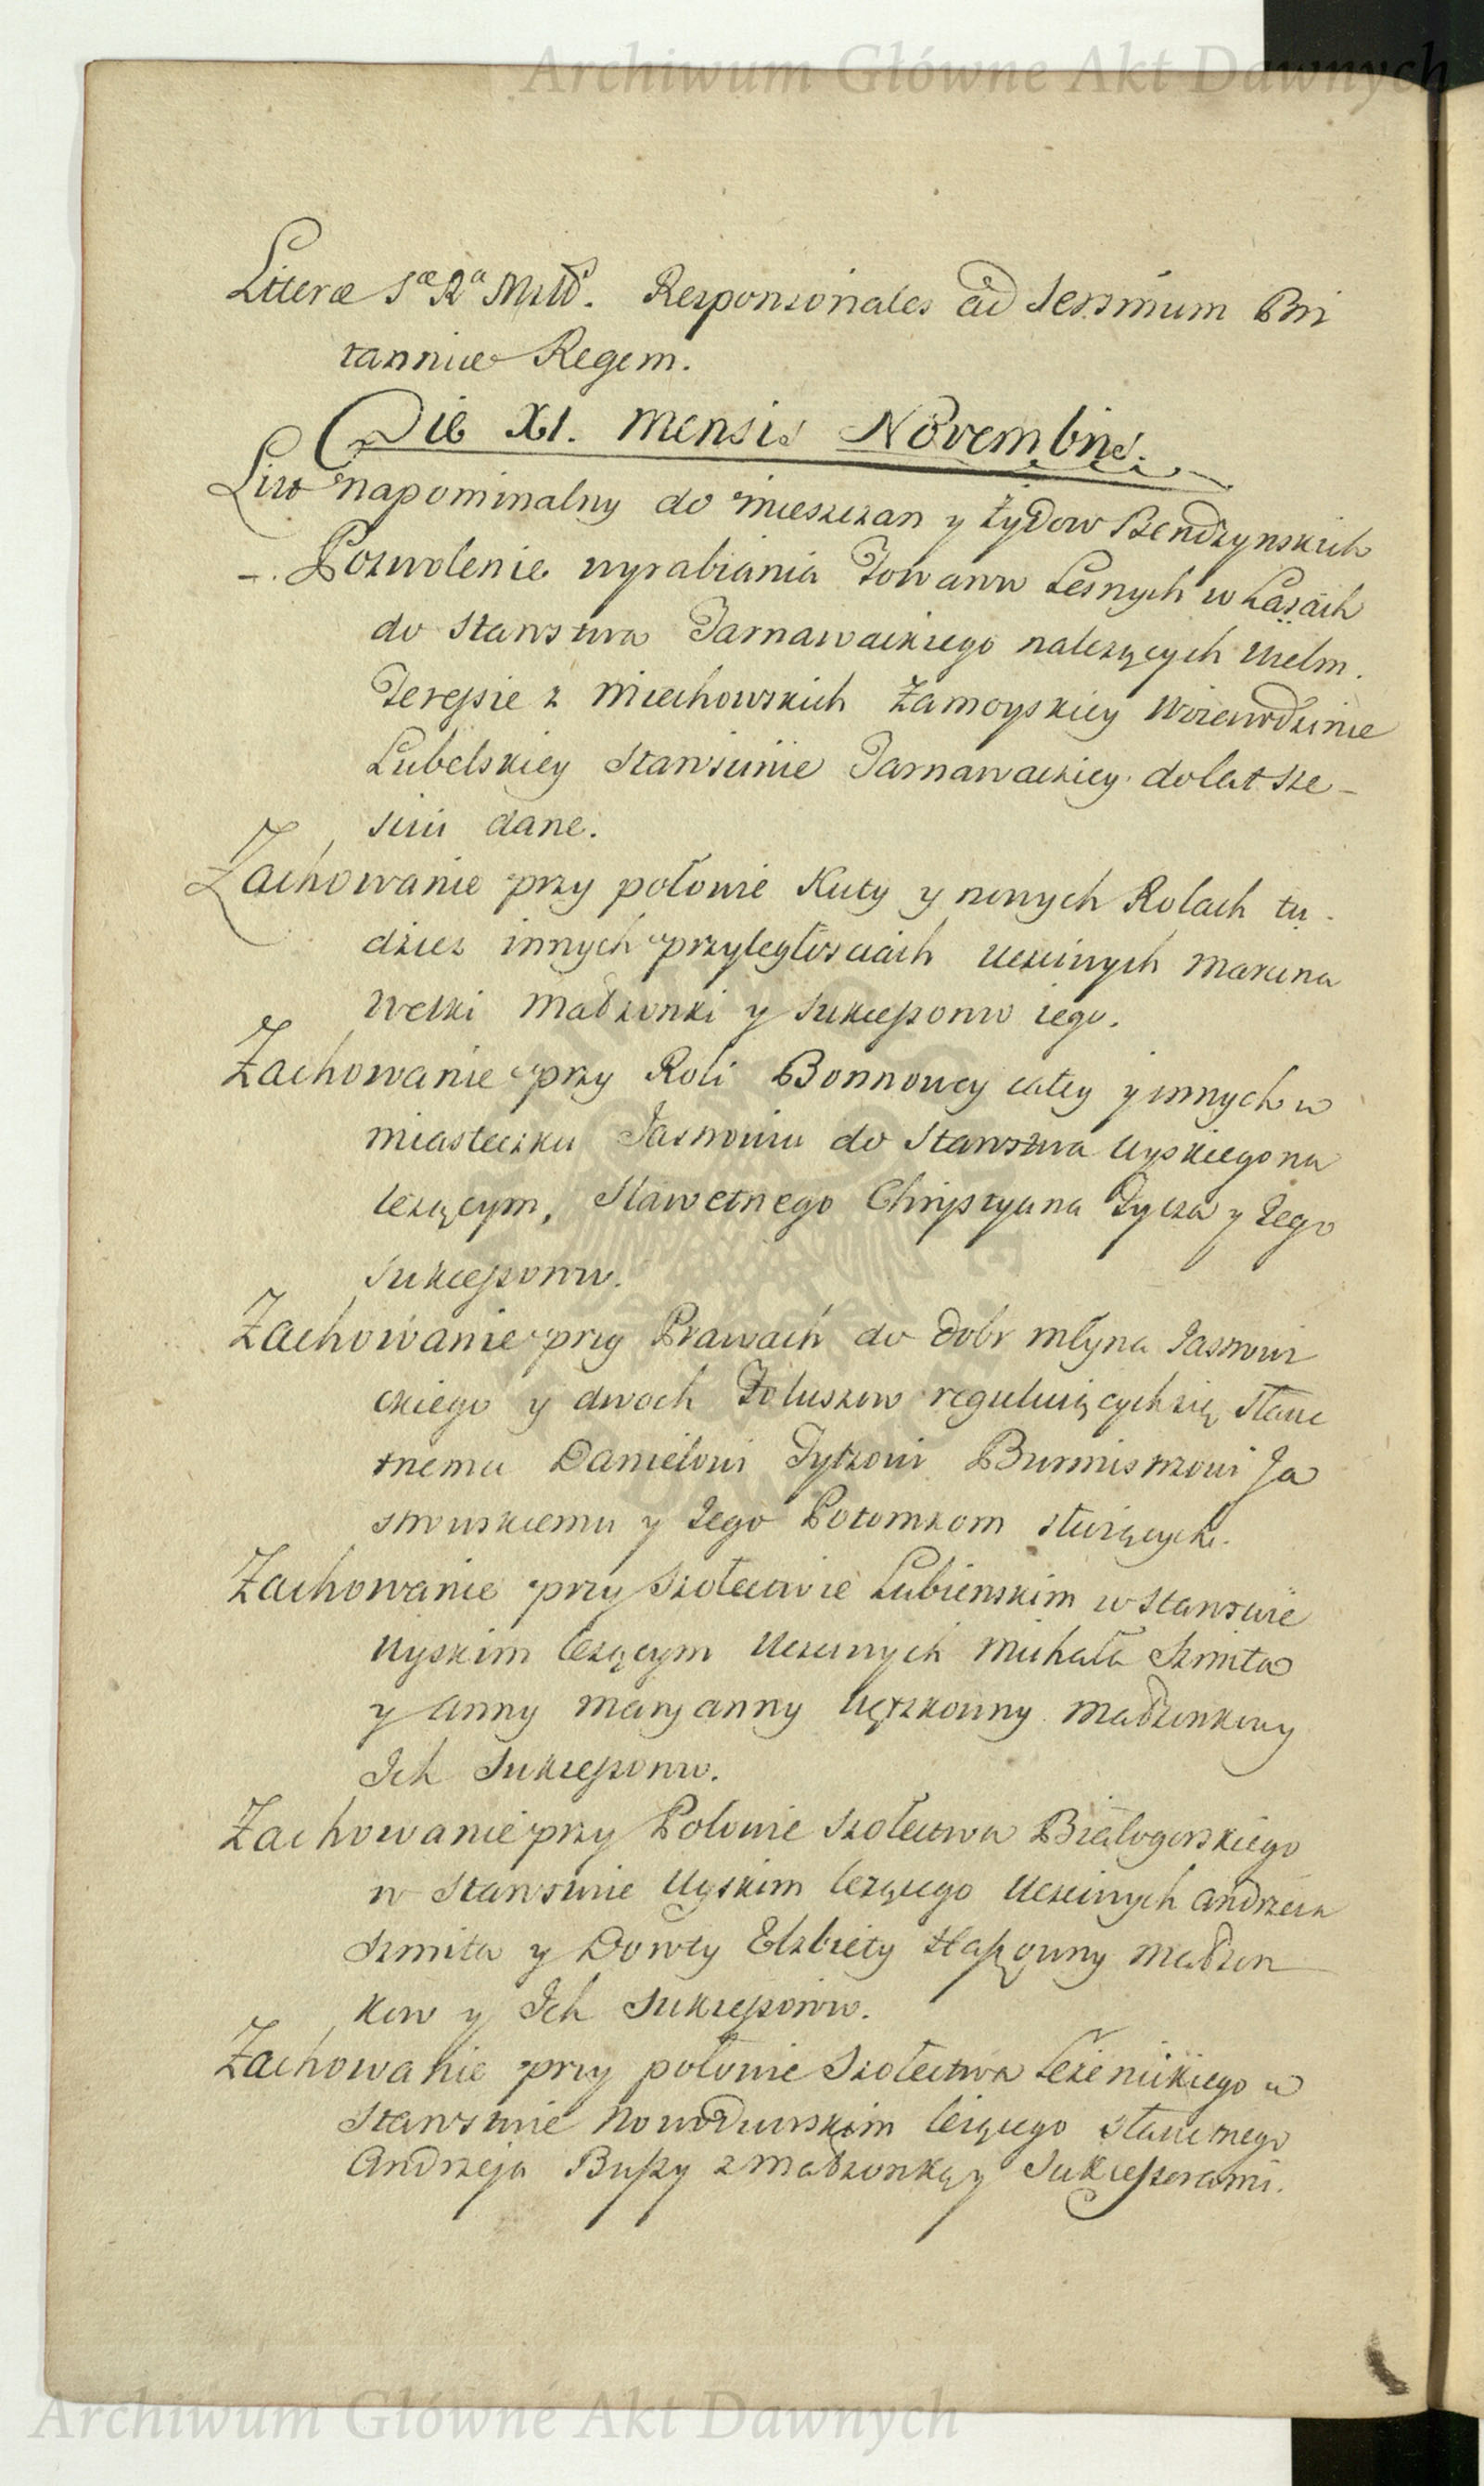 Archiwum Główne Akt Dawnych
Literæ Sæ Ra Mttis. Responsionales ad Sersimum Bri
tanniæ Regem.
Die XI. Mensis Novembris.
List napominalny do mieszczan y Zydow Bendzynskich
–. Pozwolenie wyrabiania Towarow Lesnych w Lasach
do Starostwa Tarnawackiego nalezących Wielm.
Teressie z Miechowskich Zamoyskiey Woiewodzinie
Lubelskiey Starościnie Tarnawackiey do lat sze–
ściu dane.
Zachowanie przy połowie Huty y nowych Rolach tu
dziesz innych przyległosciach Uczciwych Marcina
Welki Małżonki y Sukcessorow iego.
Zachowanie przy Roli Bornowey całey y innych w
miasteczku Jastrowiu do Starostwa Uyskiego na
lezącym, Sławetnego Chrystyana Tycza y Jego
Sukcessorow.
Zachowanie przy Prawach do dobr młyna Jastrowi
ckiego y dwoch Foluszow reguluiących się Sławe
tnemu Danielowi Tytzowi Burmistrzowi Ja
strowskiemu y Jego Potomkom służących.
Zachowanie przy Szołectwie Lubienskim w Starostwie
Uyskim lezącym Uczciwych Michała Szmita
y Anny Maryanny małżonkow y
Ich Sukcessorow.
Zachowanie przy Połowie Szołectwa Białogorskiego
w Starostwie Uyskim lezącego Uczciwych Andrzeia
Szmita y Doroty Elzbiety małżon
kow y Ich Sukcessorow.
Zachowanie przy połowie Szołectwa Leżenickiego w
Starostwie Nowodworskim leżącego Sławetnego
Andrzeja Bussy z Małżonką y Sukcessorami.
Archiwum Główne Akt Dawnych